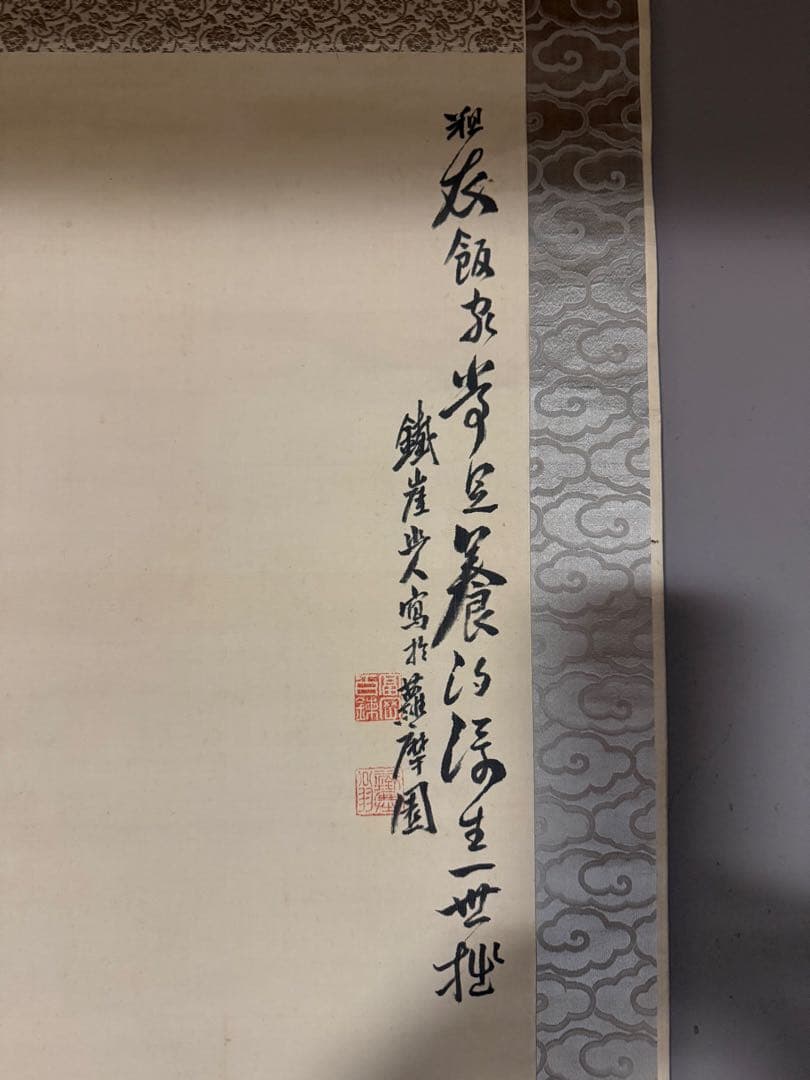 粗衣飯家常足養得浮生一世拙
鐵崖山人寫於蘿摩園
富岡百鍊